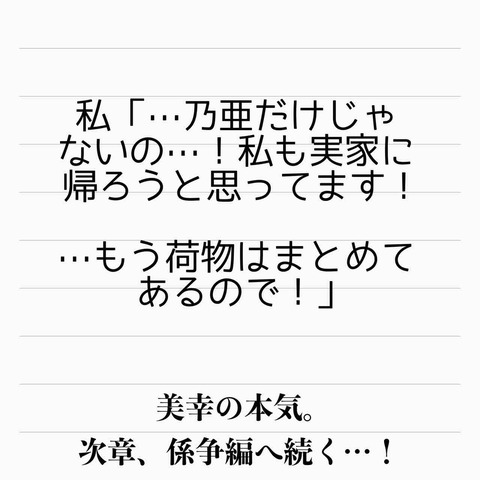 私「…乃亜だけじゃ
ないの…！私も実家に
帰ろうと思ってます！
…もう荷物はまとめて
あるので！」
美幸の本気。
次章、係争編へ続く…！